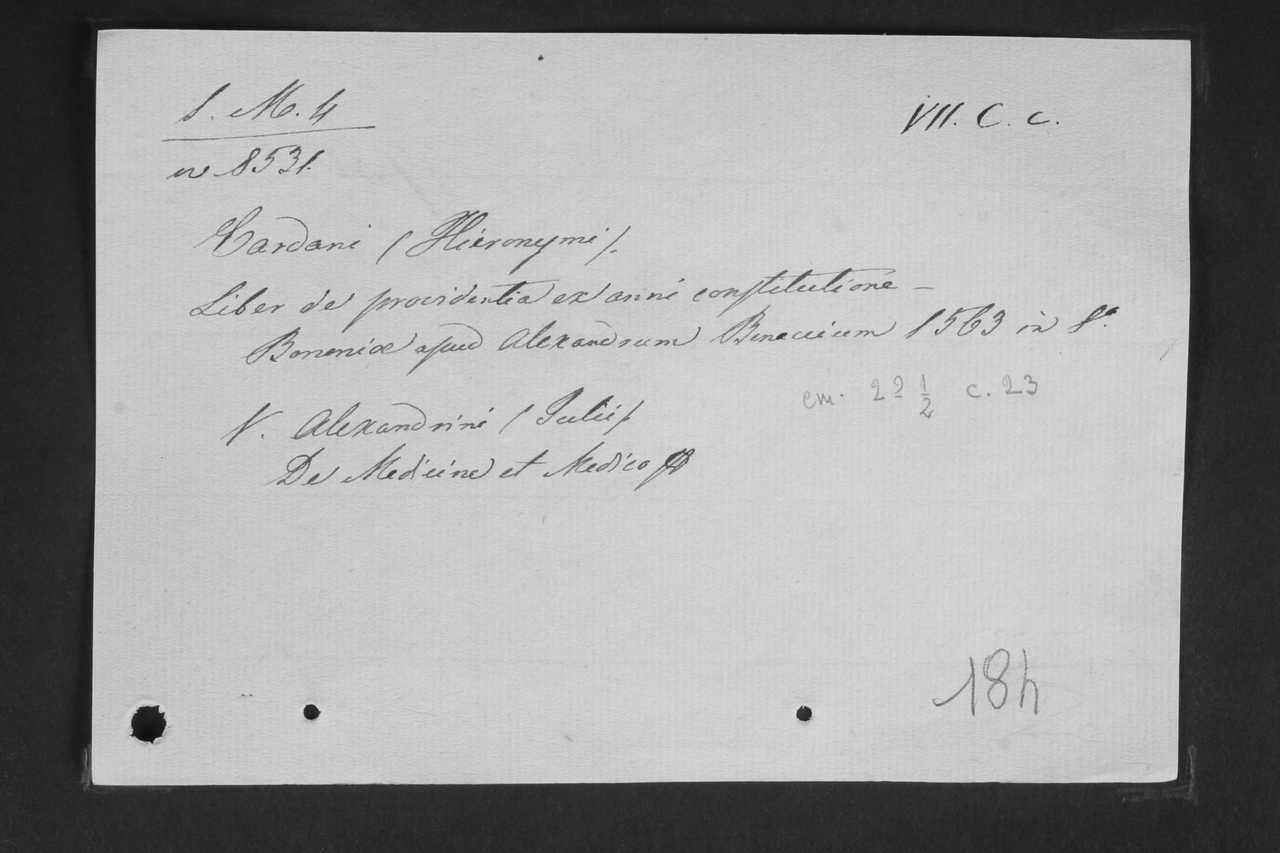 S. M. 4
VII. C. c.
n 8531.
Cardani (Hieronymi).
Liber de providentia ex anni constitutione –
Bononiæ apud Alexandrum Benaccium 1563 in 8.°
cm. 22 1/2 c. 23
V. Alexandrini (Julii)
De Medicine et Medico
184